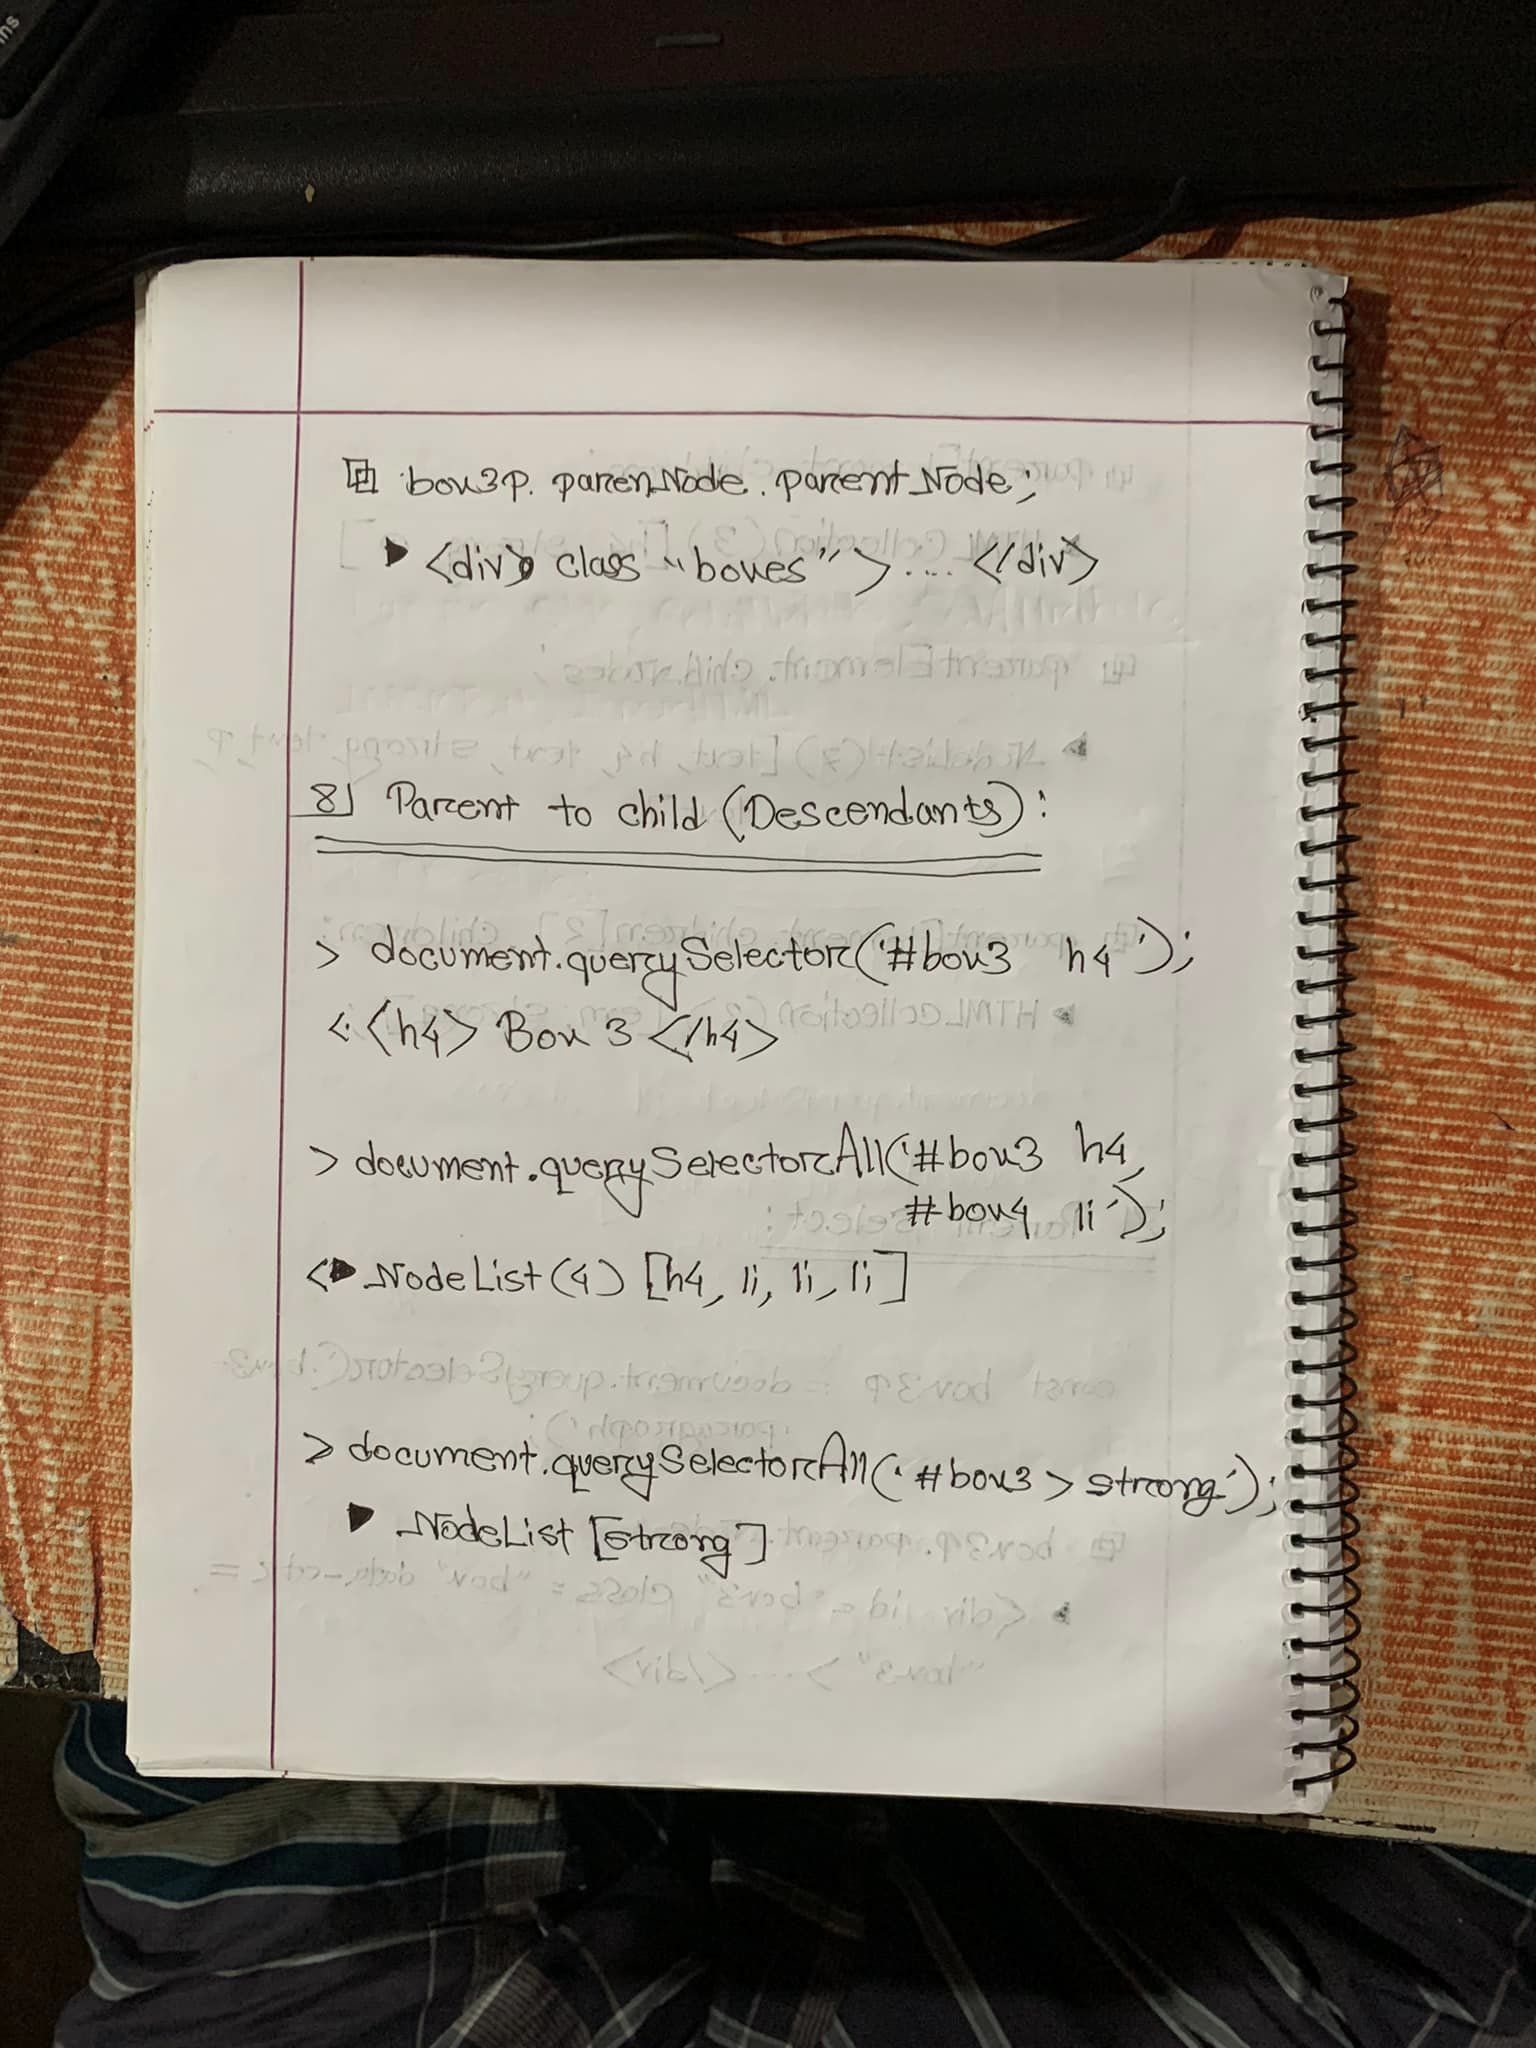 box3p. parenNode. parentNode;
▶ <div> class "boxes" > .... </div>
8] Parent to child (Descendants) :
> document.querySelector('#box3 h4');
< <h4> Box 3 </h4>
> document.querySelectorAll('#box3 h4,
#box4 li');
<▶ NodeList (4) [h4, li, li, li]
> document.querySelectorAll('#box3 > strong');
▶ NodeList [strong]